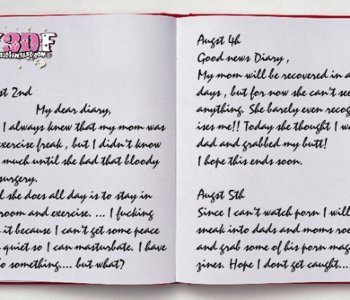 Y3DF
st 2nd
My dear diary,
I always knew that my mom was
exercise freak, but I didn't know
much until she had that bloody
surgery.
she does all day is to stay in
room and exercise. ... I fucking
it because I can't get some peace
quiet so I can masturbate. I have
o something.... but what?
Augst 4h
Good news Diary,
My mom will be recovered in a
days, but for now she can't see
anything. She barely even recog
ises me!! Today she thought I w
dad and grabbed my butt!
I hope this ends soon.
Augst 5th
Since I can't watch porn I will
sneak into dads and moms roo
and grab some of his porn mag
zines. Hope I dont get caught....